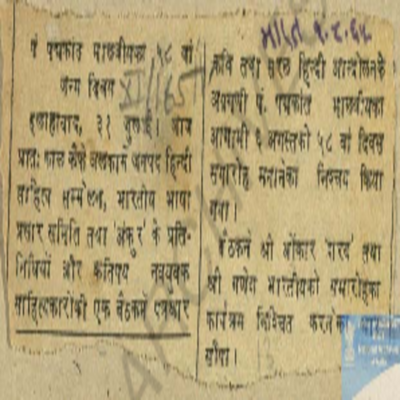 पं पद्मकांत मालवीयका ५८ वां
जन्म दिवस
इलाहाबाद, ३१ जुलाई। आज
प्रातः काल कैफे अलकामें जनपद हिन्दी
साहित्य सम्मेलन, भारतीय भाषा
प्रचार समिति तथा 'अंकुर' के प्रति-
निधियों और कतिपय नवयुवक
साहित्यकारोंकी एक बैठकमें पत्रकार
भारत १.८.६५
कवि तथा सरल हिन्दी आन्दोलनके
अग्रणी पं. पद्मकांत मालवीयका
आगामी ६ अगस्तको ५८ वां दिवस
समारोह मनानेका निश्चय किया
गया।
बैठकने श्री ओंकार 'शरद' तथा
श्री गणेश भारतीयको समारोहका
कार्यक्रम निश्चित करनेका भार
सौंपा।